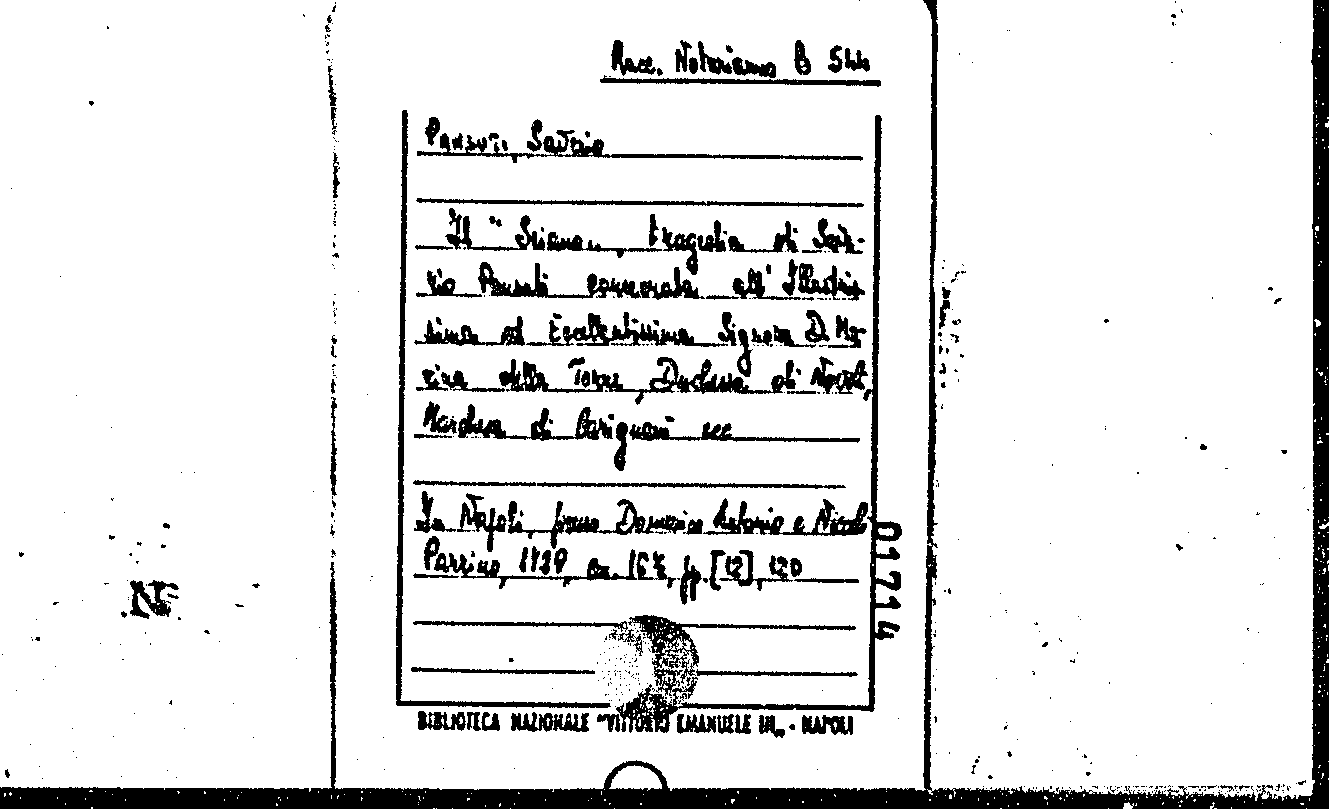 Racc. Notariamo B 544
Pansuti, Saverio
Il Seiano, tragedia di Save-
rio Pansuti consecrata all' Illustris-
sima ed Eccellentissima Signora D. Ma-
ria della Torre, Duchessa di Novoli,
Marchesa di Carignani ecc
In Napoli, presso Domenico Antonio e Nicola
Parrino, 1729, cm. 16½, pp. [12], 120
BIBLIOTECA NAZIONALE "VITTORIO EMANUELE III„ - NAPOLI
01714